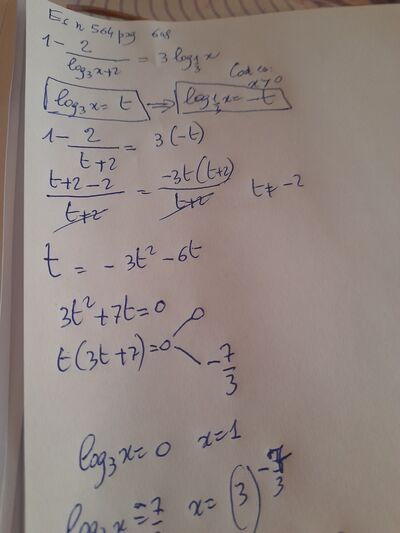 Es n 564 pag 648
1 - 2/(log₃x+2) = 3 log_{1/3} x
Cond es: x>0
log₃x = t ⇒ log_{1/3} x = -t
1 - 2/(t+2) = 3(-t)
(t+2-2)/(t+2) = -3t(t+2)/(t+2) t ≠ -2
t = -3t² - 6t
3t² + 7t = 0
t(3t+7) = 0 0
-7/3
log₃x = 0 x = 1
log₃x = -7/3 x = (3)^{-7/3}